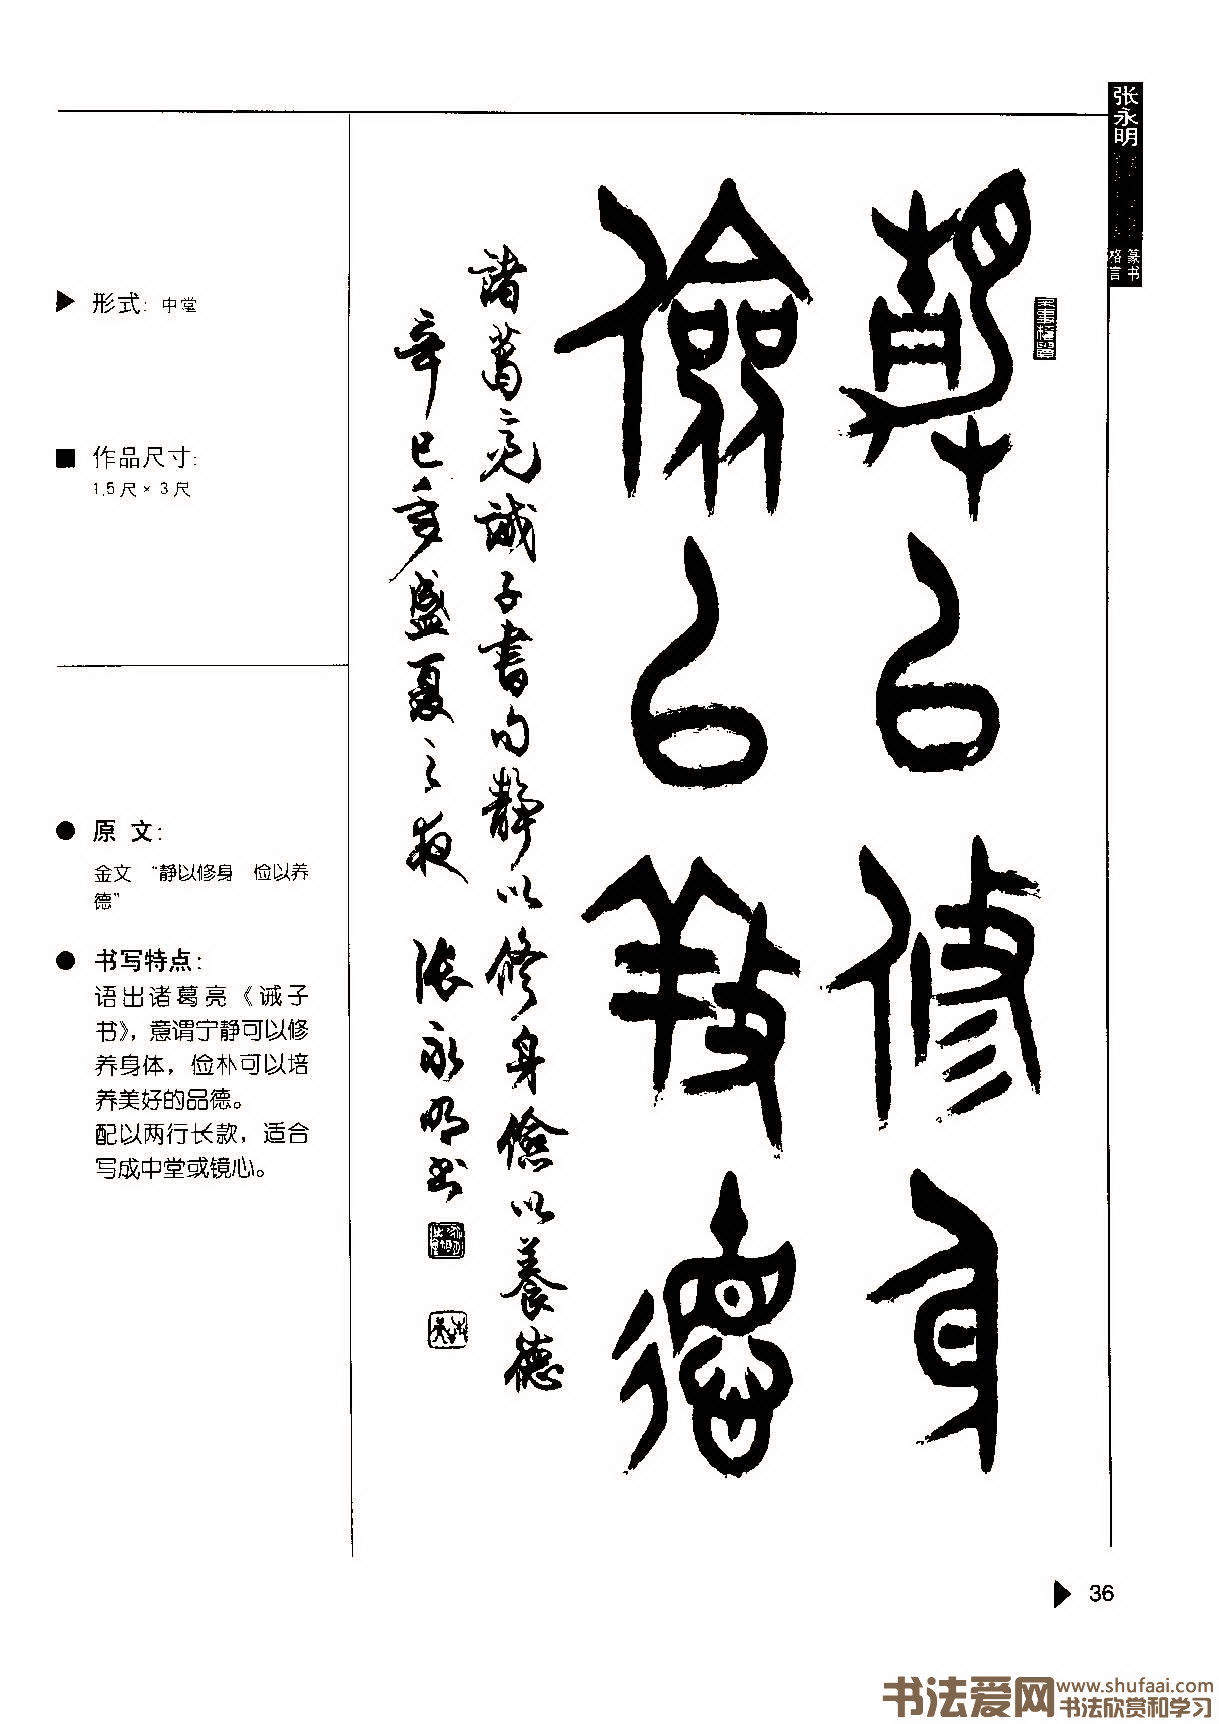 张永明
篆书
格言
静以修身
俭以养德
諸葛亮誡子書句靜以修身儉以養德
辛巳年盛夏之夜 張永明书
形式: 中堂
作品尺寸:
1.5尺×3尺
原 文:
金文 “静以修身 俭以养
德”
书写特点:
语出诸葛亮《诫子
书》，意谓宁静可以修
养身体，俭朴可以培
养美好的品德。
配以两行长款，适合
写成中堂或镜心。
36
书法爱网
www.shufaai.com
书法欣赏和学习